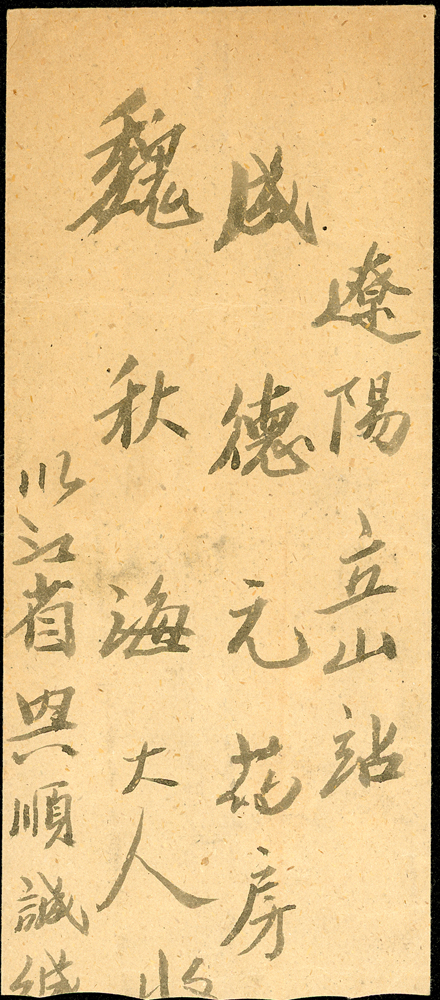 遼陽立山站
成德元花房
魏秋海大人收
以江省興順誠緘